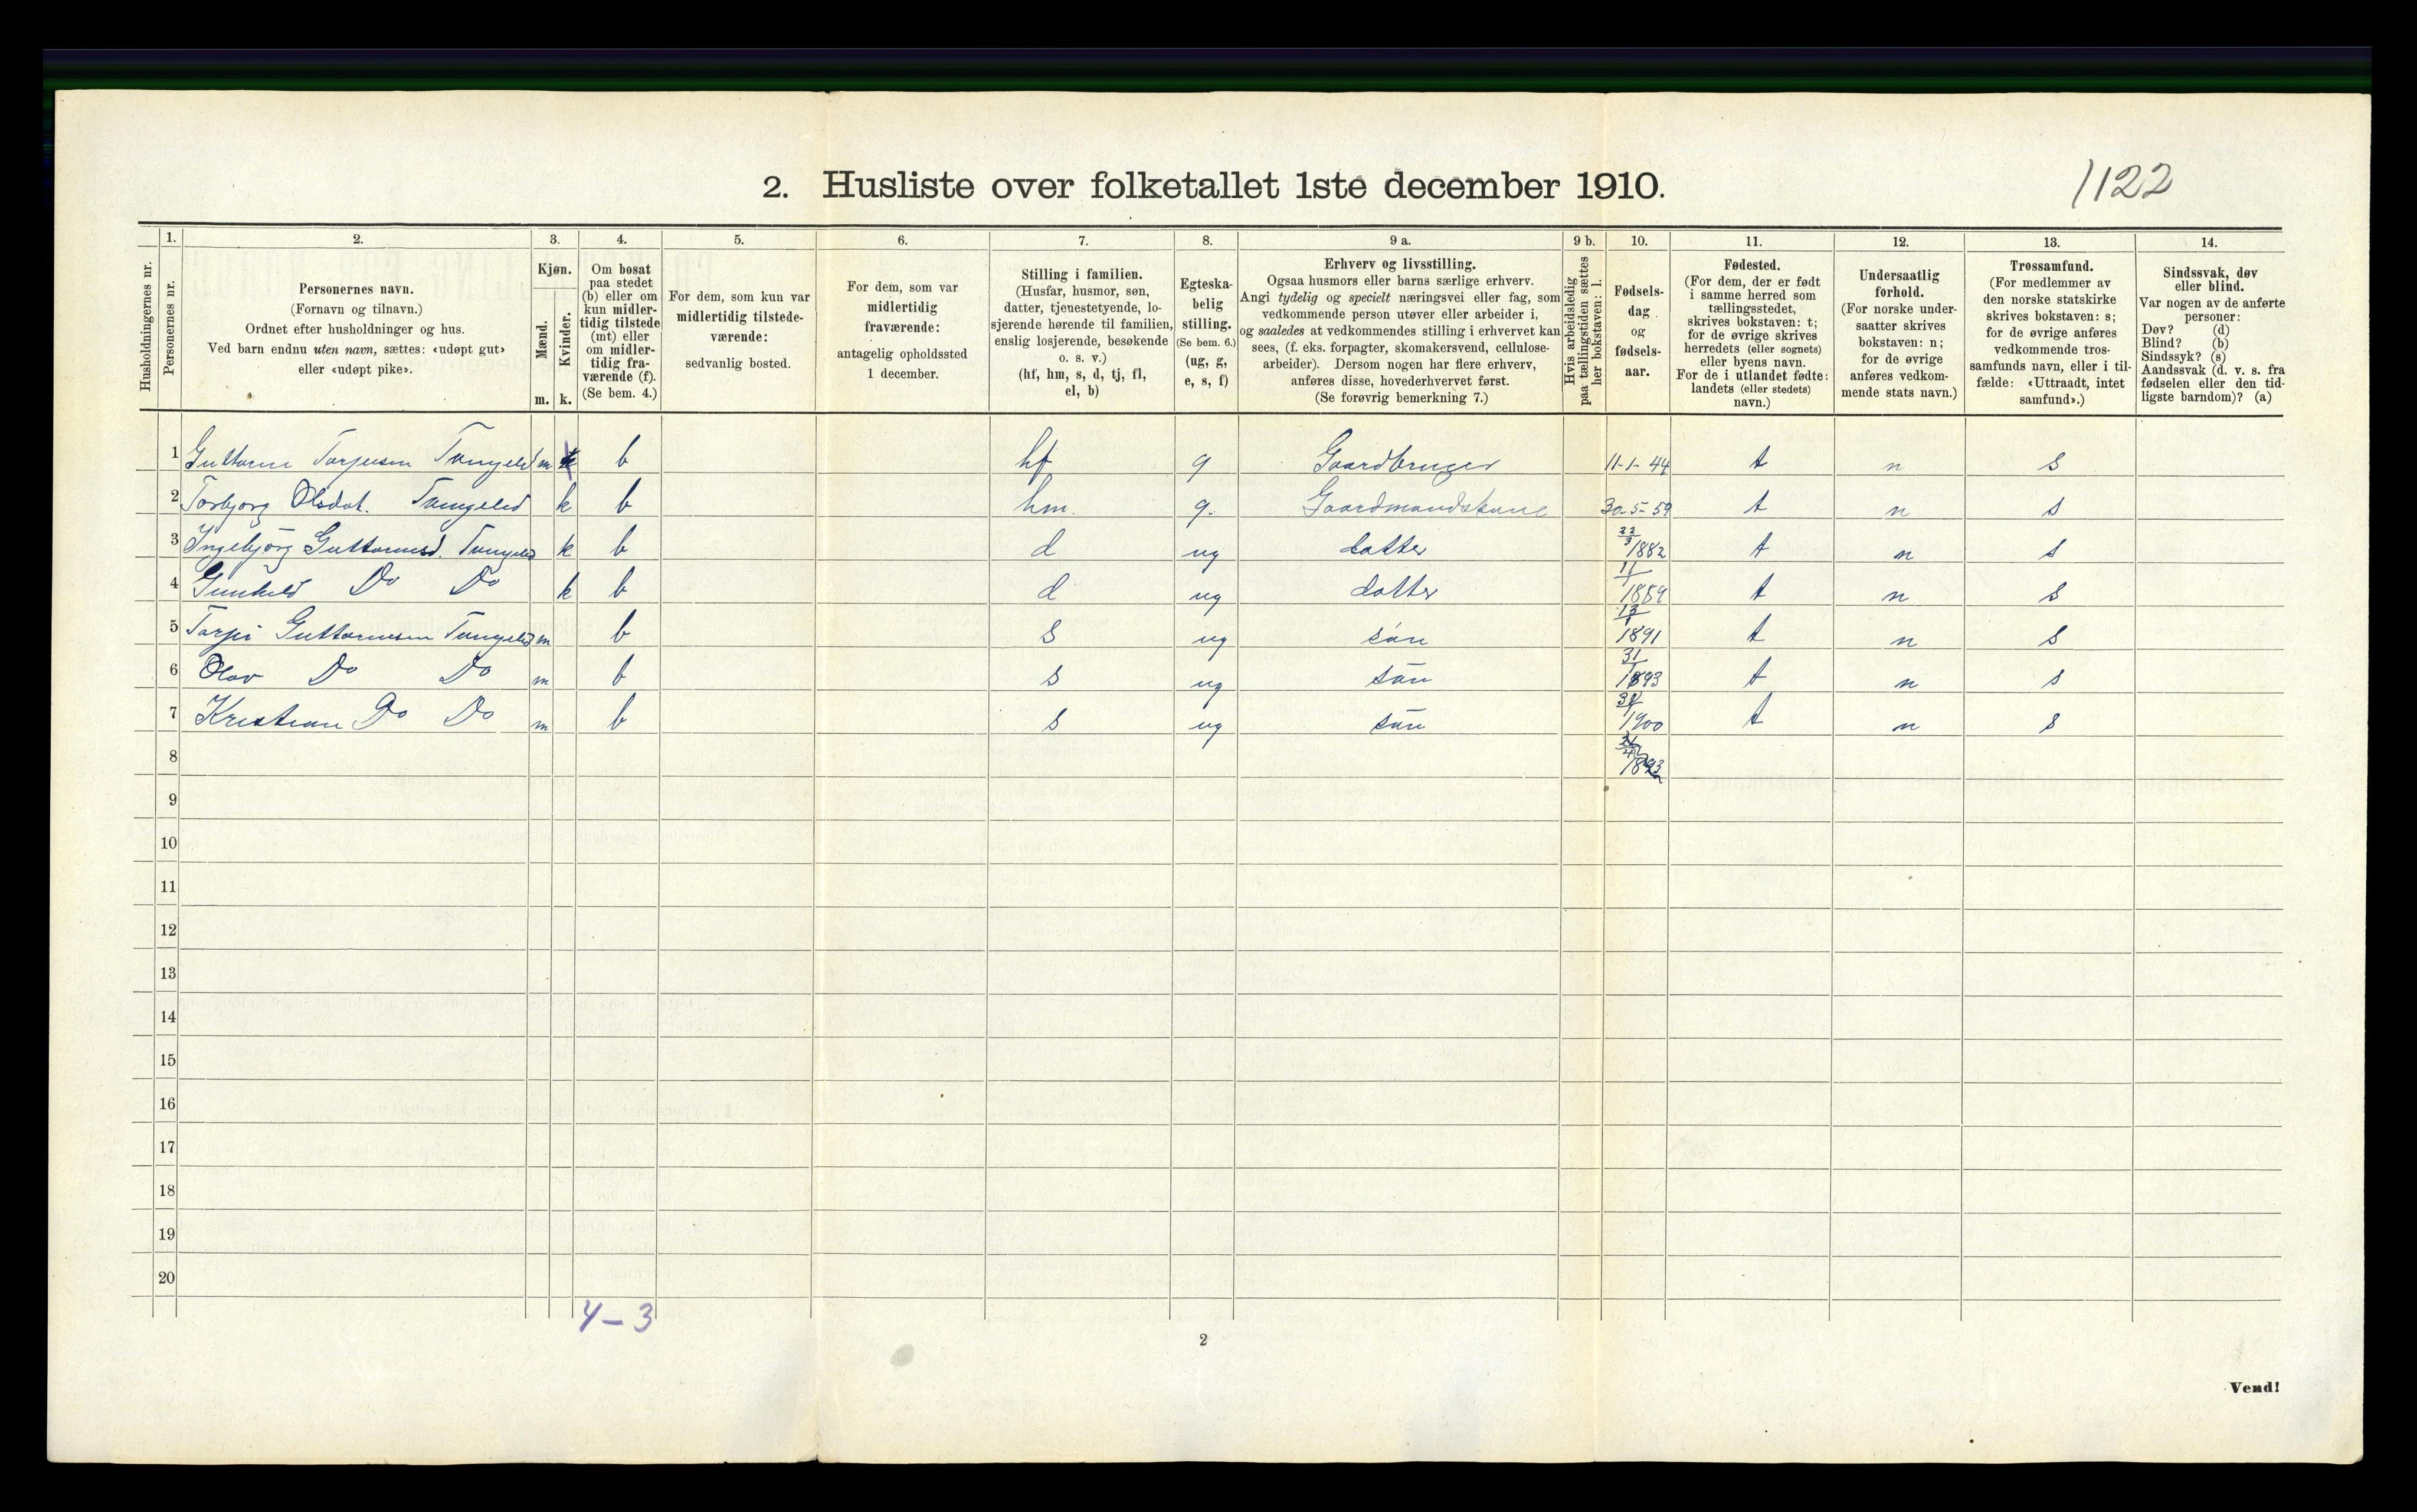 2. Husliste over folketallet 1ste december 1910.
1122
Husholdningernes nr.
1.
Personernes nr.
2.
Personernes navn.
(Fornavn og tilnavn.)
Ordnet efter husholdninger og hus.
Ved barn endnu uten navn, sættes: «udøpt gut»
eller «udøpt pike».
3.
Kjøn.
Mænd.
Kvinder.
m. k.
4.
Om bosat
paa stedet
(b) eller om
kun midler-
tidig tilstede
(mt) eller
om midler-
tidig fra-
værende (f).
(Se bem. 4.)
5.
For dem, som kun var
midlertidig tilstede-
værende:
sedvanlig bosted.
6.
For dem, som var
midlertidig
fraværende:
antagelig opholdssted
1 december.
7.
Stilling i familien.
(Husfar, husmor, søn,
datter, tjenestetyende, lo-
sjerende hørende til familien,
enslig losjerende, besøkende
o. s. v.)
(hf, hm, s, d, tj, fl,
el, b)
8.
Egteska-
belig
stilling.
(Se bem. 6.)
(ug, g,
e, s, f)
9 a.
Erhverv og livsstilling.
Ogsaa husmors eller barns særlige erhverv.
Angi tydelig og specielt næringsvei eller fag, som
vedkommende person utøver eller arbeider i,
og saaledes at vedkommendes stilling i erhvervet kan
sees, (f. eks. forpagter, skomakersvend, cellulose-
arbeider). Dersom nogen har flere erhverv,
anføres disse, hovederhvervet først.
(Se forøvrig bemerkning 7.)
9 b.
Hvis arbeidsledig
paa tællingstiden sættes
her bokstaven: l.
10.
Fødsels-
dag
og
fødsels-
aar.
11.
Fødested.
(For dem, der er født
i samme herred som
tællingsstedet,
skrives bokstaven: t;
for de øvrige skrives
herredets (eller sognets)
eller byens navn.
For de i utlandet fødte:
landets (eller stedets)
navn.)
12.
Undersaatlig
forhold.
(For norske under-
saatter skrives
bokstaven: n;
for de øvrige
anføres vedkom-
mende stats navn.)
13.
Trossamfund.
(For medlemmer av
den norske statskirke
skrives bokstaven: s;
for de øvrige anføres
vedkommende tros-
samfunds navn, eller i til-
fælde: «Uttraadt, intet
samfund».)
14.
Sindssvak, døv
eller blind.
Var nogen av de anførte
personer:
Døv? (d)
Blind? (b)
Sindssyk? (s)
Aandssvak (d. v. s. fra
fødselen eller den tid-
ligste barndom)? (a)
1 Guttorm Torjusen m b hf g Gaardbruger 11-1-44 t n s
2 Torbjørg Olsdat. k b hm. g. Gaardmandskone 30-5-59 t n s
3 Ingebjörg Guttormsd. k b d ug datter 22/3 1882 t n s
4 Gunhild Do Do k b d ug datter t n s
5 Guttormsen m b s ug sön 1891 t n s
6 Olav Do Do m b s ug sön 1893 t n s
7 Kristian Do Do m b s ug sön 1900 t n s
8
9
10
11
12
13
14
15
16
17
18
19
20
4-3
2
Vend!